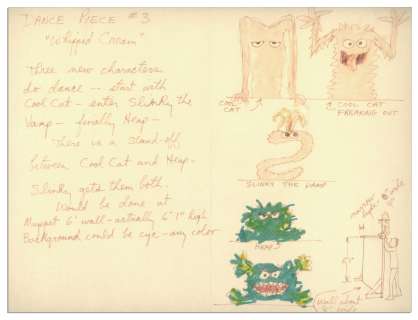 DANCE PIECE #3
"Whipped Cream"
Three new characters
do dance -- start with
Cool Cat - enter Slinky the
Vamp - finally Heap -
There is a stand-off
between Cool Cat and Heap -
Slinky gets them both.
Would be done at
Muppet 6' wall - actually 6' 1" high
Background could be cyc - any color
COOL
CAT
COOL CAT
FREAKING OUT
SLINKY THE VAMP
HEAPS
6'
Wall about